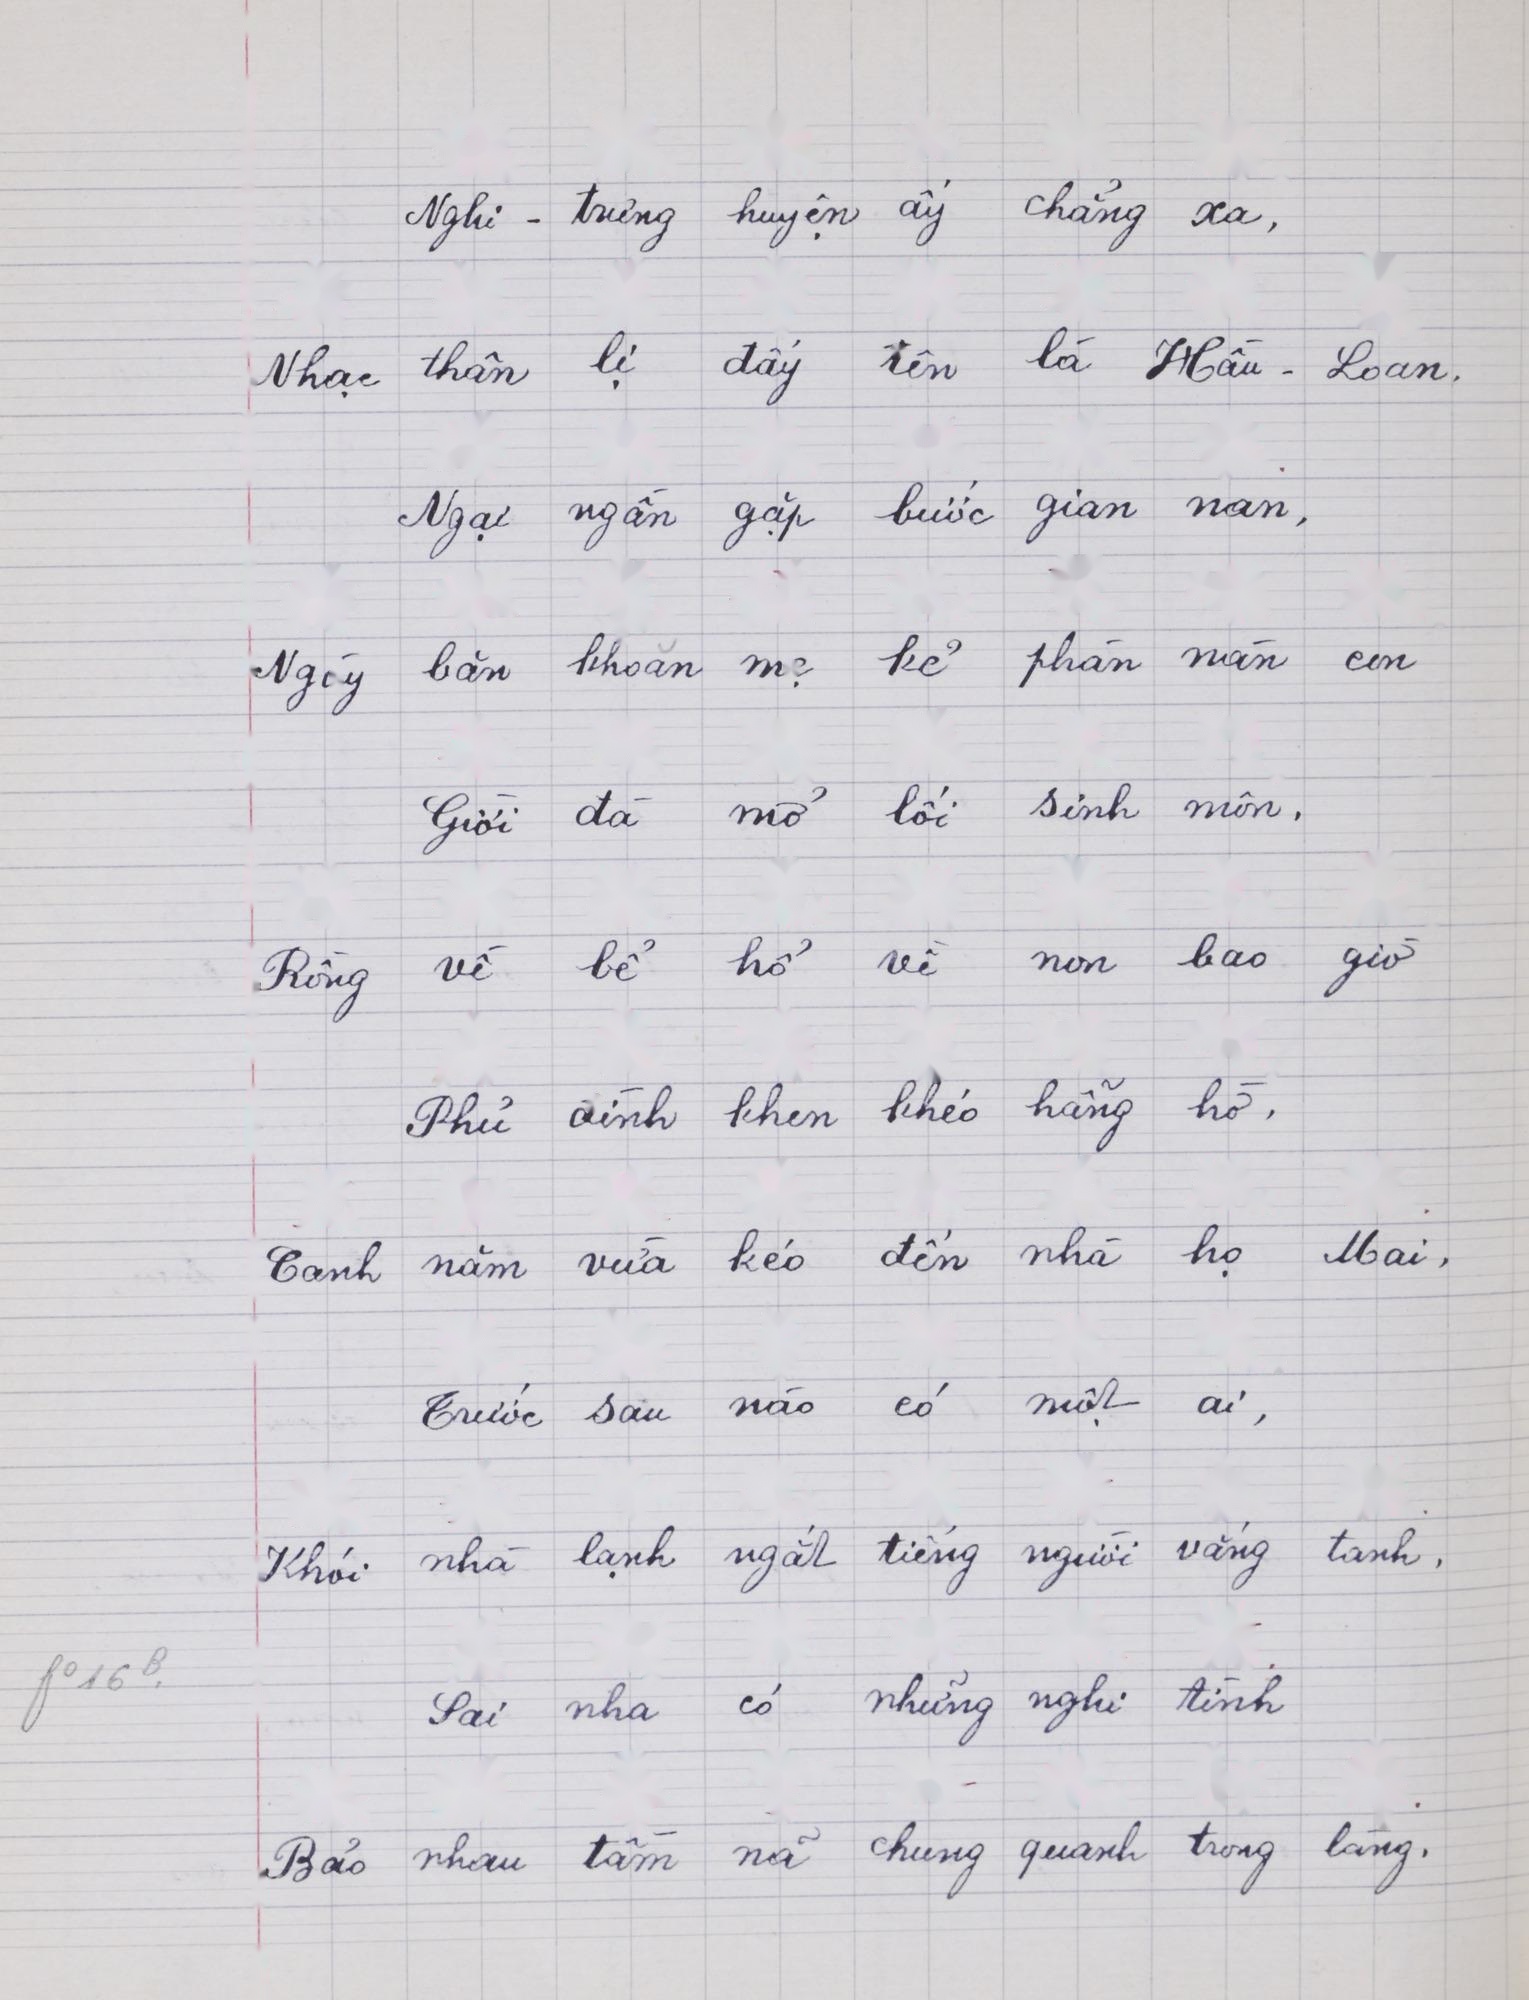 Nghi - trưng huyện ấy chẳng xa,
Nhạc thân lị đấy tên là Hầu - Loan.
Ngại ngần gặp bước gian nan,
Ngày băn khoăn mẹ kể phàn nàn con
Giời đà mở lối sinh môn,
Rồng về bể hổ về non bao giờ
Phủ đình khen khéo hững hờ,
Canh năm vừa kéo đến nhà họ Mai,
Trước sau nào có một ai,
Khói nhà lạnh ngắt tiếng người vắng tanh,
fº 16 B.
Sai nha có những nghi tình
Bảo nhau tầm nã chung quanh trong làng.